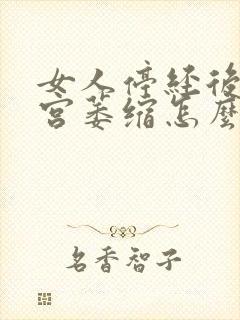 女人停经後
宫萎缩怎麽
名香智子